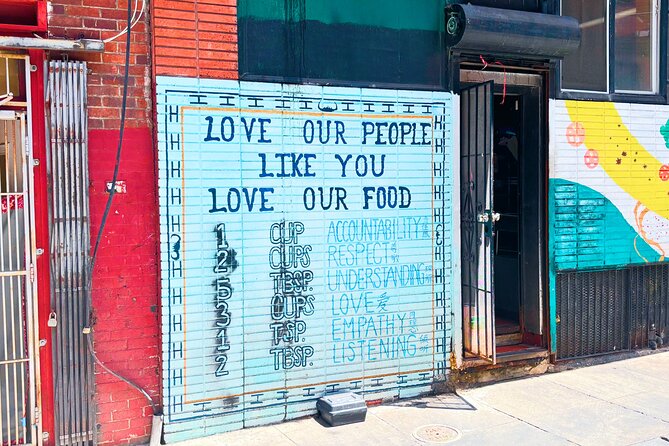 LOVE OUR PEOPLE
LIKE YOU
LOVE OUR FOOD
1 CUP ACCOUNTABILITY
2 CUPS RESPECT
5 TBSP. UNDERSTANDING
3 CUPS LOVE 愛
1 TSP. EMPATHY
2 TBSP. LISTENING